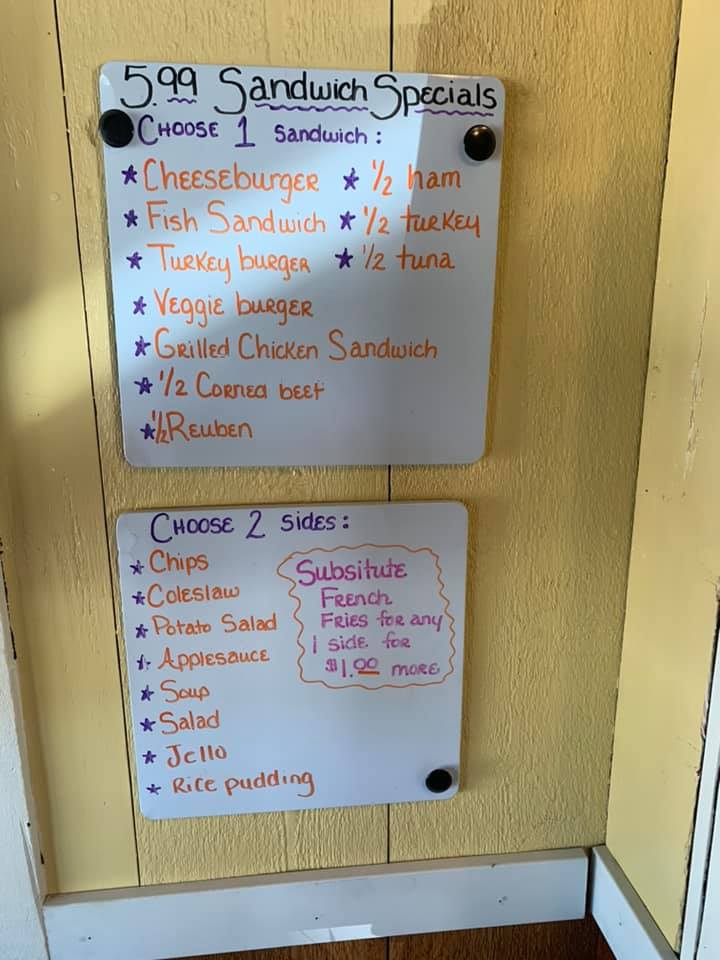 5.99 Sandwich Specials
CHOOSE 1 Sandwich:
* Cheeseburger * 1/2 ham
* Fish Sandwich * 1/2 turkey
* Turkey burger * 1/2 tuna
* Veggie burger
* Grilled Chicken Sandwich
* 1/2 Corned beef
* 1/2 Reuben
CHOOSE 2 sides:
* Chips
* Coleslaw
* Potato Salad
* Applesauce
* Soup
* Salad
* Jello
* Rice pudding
Subsitute
French
Fries for any
1 side for
$1.00 more